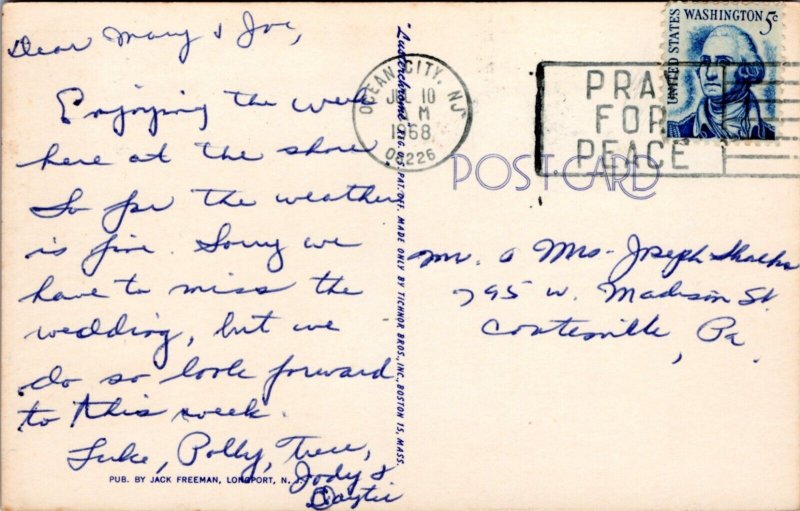 Dear Mary & Joe,
Enjoying the week
here at the shore
So far the weather
is fine. Sorry we
have to miss the
wedding, but we
do so look forward
to this week.
Luke, Polly,
Jody &
PUB. BY JACK FREEMAN, LONGPORT, N. J.
"Lusterchrome" REG. U.S. PAT. OFF. MADE ONLY BY TICHNOR BROS., INC., BOSTON 15, MASS.
OCEAN CITY, NJ
JUL 10
M
1968
08226
PRAY
FOR
PEACE
UNITED STATES
WASHINGTON 5c
POST CARD
Mr. & Mrs. Joseph
795 W. Madison St.
Coatesville, Pa.